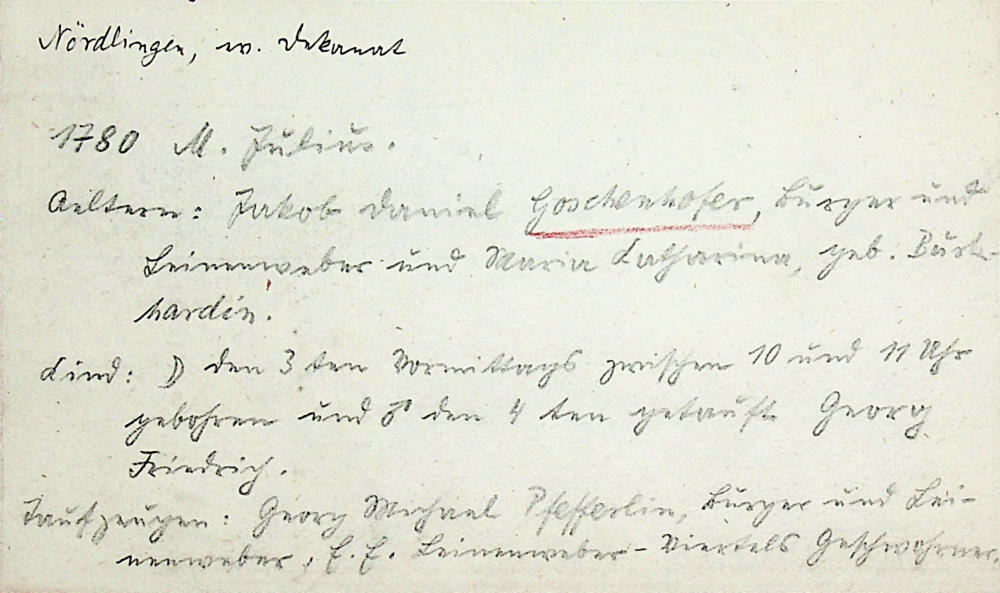 Nördlingen, ev. Dekanat
1780 M. Julius.
Aeltern: Jakob Daniel Goschenhofer, Bürger und
Leinenweber und Maria Katharina, geb. Burk-
hardin.
Kind: ☽ den 3 ten Vormittags zwischen 10 und 11 Uhr
gebohren und ♂ den 4 ten getauft Georg
Friedrich.
Taufzeugen: Georg Michael Pfefferlin, Bürger und Lei-
nenweber, E. E. Leinenweber-Viertels Geschwohrner.